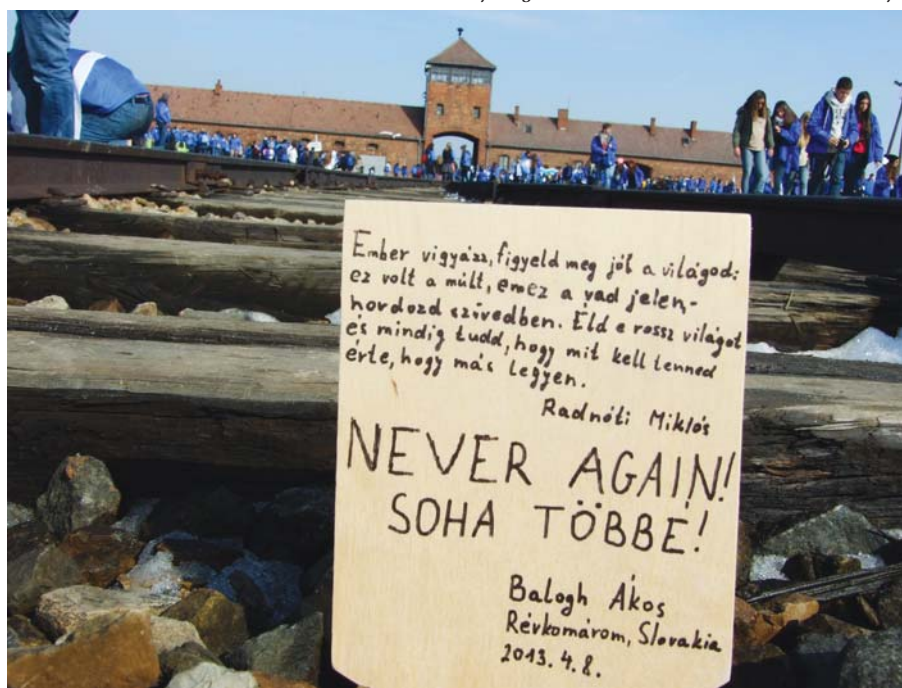 Ember vigyázz, figyeld meg jól a világod:
ez volt a múlt, emez a vad jelen-
hordozd szivedben. Éld e rossz világot
és mindig tudd, hogy mit kell tenned
érte, hogy más legyen.
Radnóti Miklós
NEVER AGAIN!
SOHA TÖBBÉ!
Balogh Ákos
Révkomárom, Slovakia
2013. 4. 8.